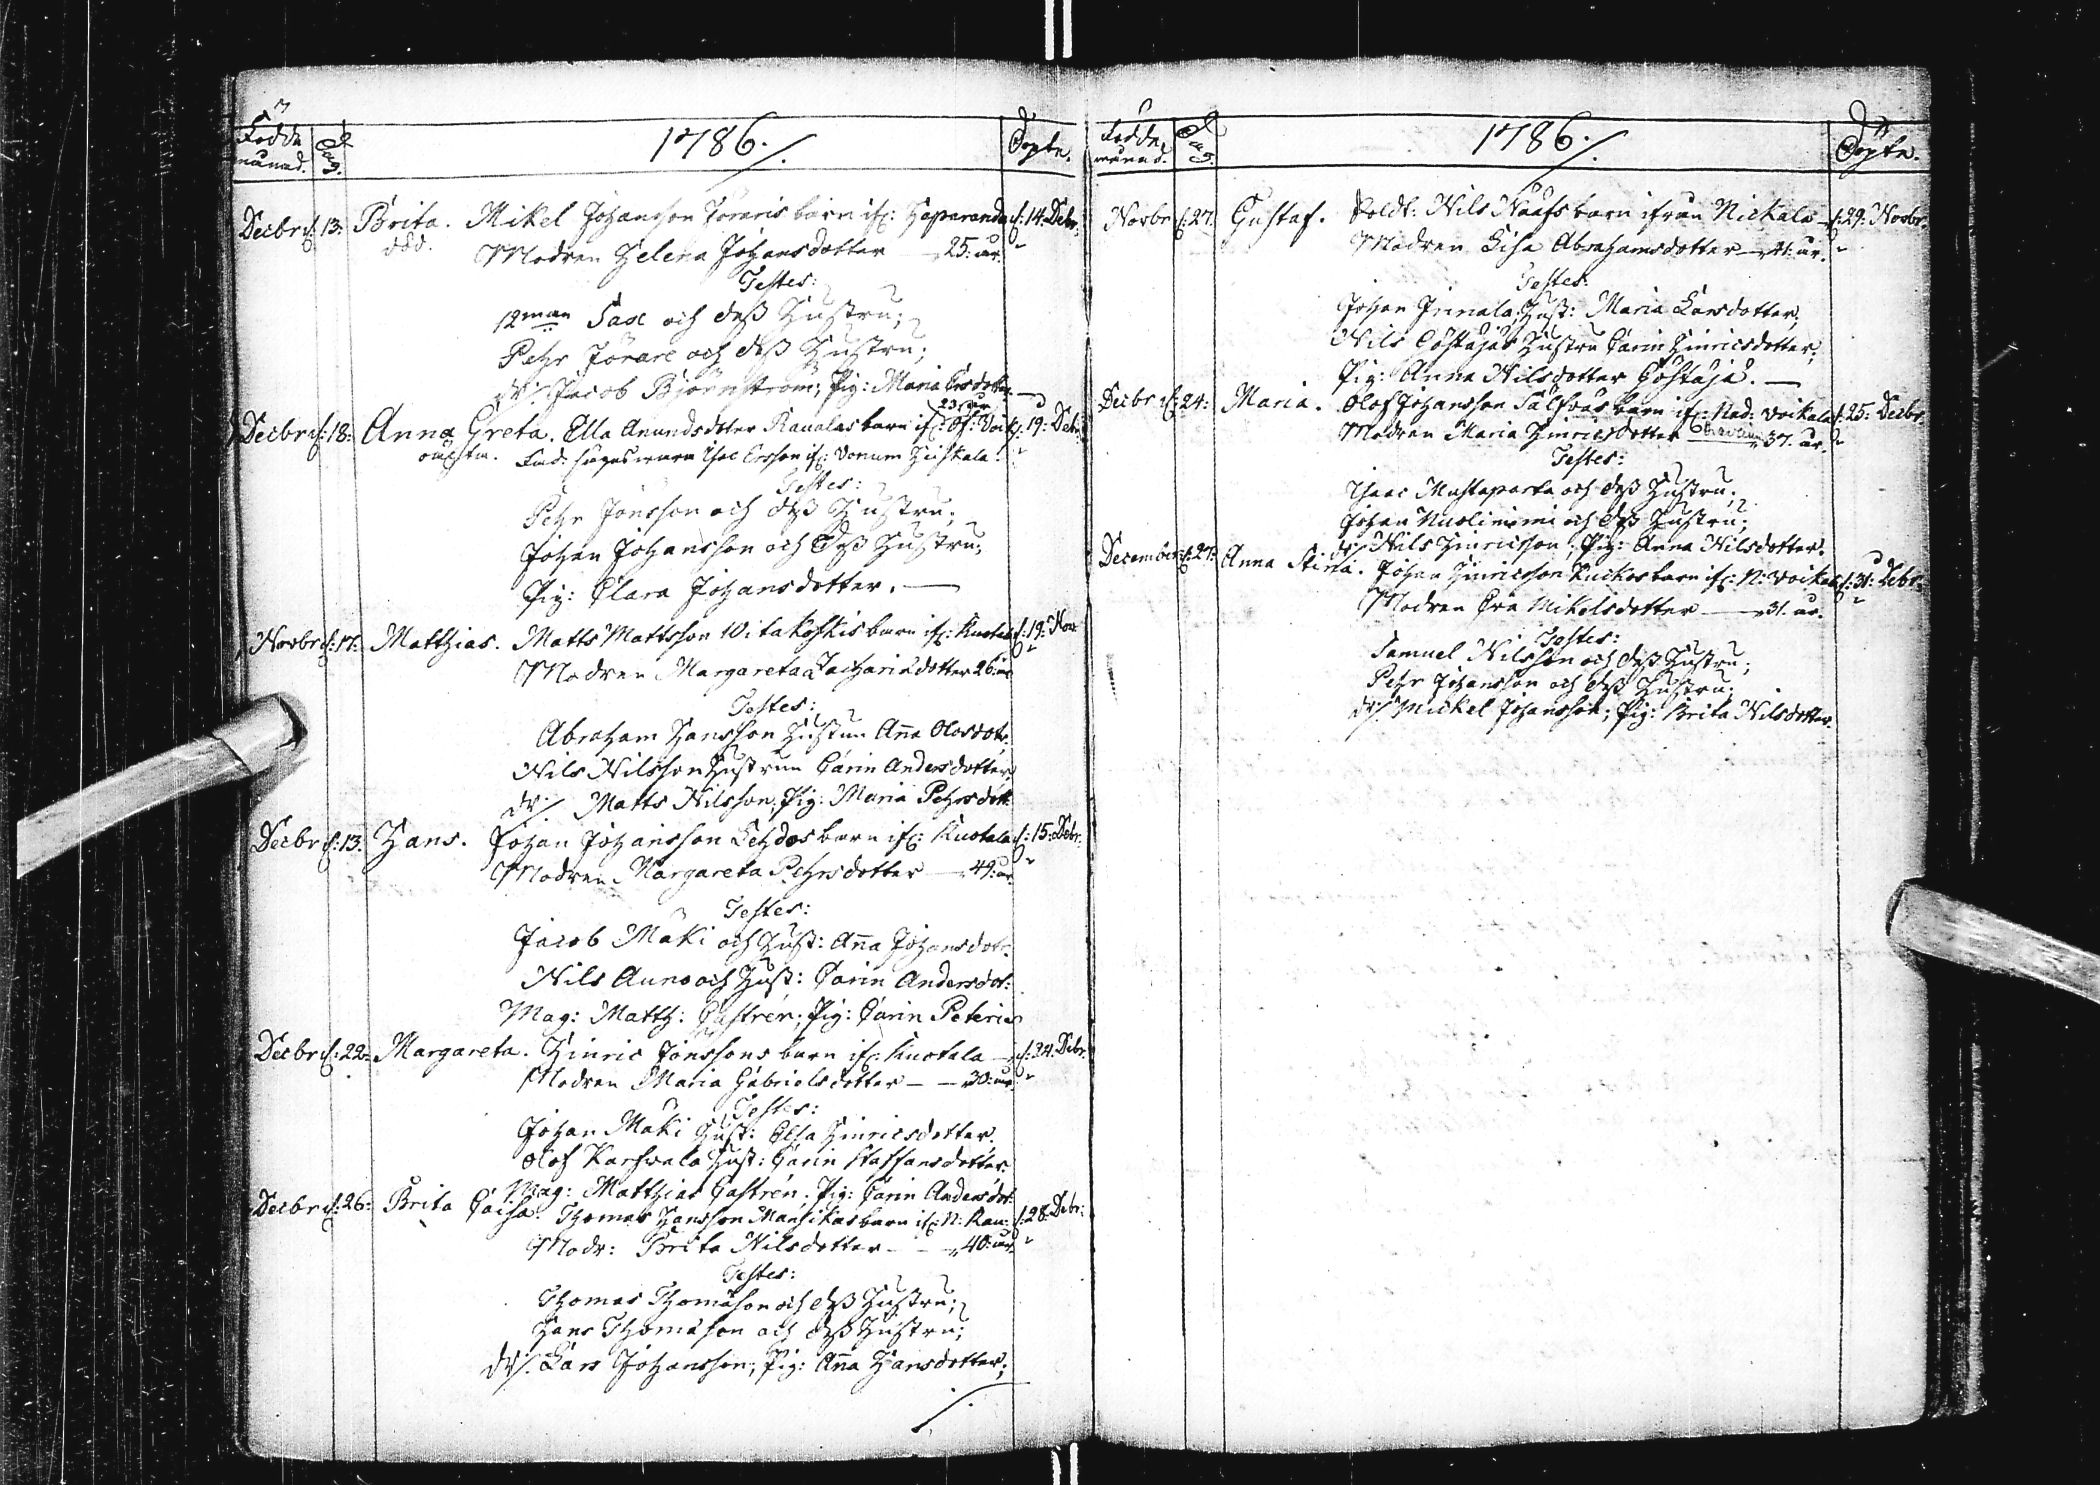 Födde månad. Dag. 1786. Döpte.
Decbr d: 13. Brita. Mikel Johansson Joraris barn ifr: Haparanda d: 14. Debr.
död. Modren Helena Johansdotter 25: år.
Testes:
12man Sax och dess Hustru;
Pehr Jorare och dess Hustru;
dr/. Jacob Björnström; Pig: Maria Ersdotter
23 år
Decbr d: 18: Anna Greta. Ella Anundsdoter Raualas barn ifr: Öf: Voi d: 19: Debr.
oächta. Isac Ersson ifr:
Testes:
Pehr Jönsson och dess Hustru;
Johan Johansson och dess Hustru;
Pig: Clara Johansdotter.
Novbr d: 17: Matthias. Matts Mattsson Witakoskis barn ifr: Kuotala d: 19: Nov
Modren Margareta Zachariædotter 26: år
Testes:
Abraham Hansson Hustrun Aña Olosdotr.
Nils Nilsson Hustrun Carin Andersdotter,
dr/. Matts Nilsson; Pig: Maria Pehrsdott:
Decbr d: 13. Hans. Johan Johansson Lehdos barn ifr: Kuotala d: 15: Debr:
Modren Margareta Pehrsdotter 49: år.
Testes:
Jacob Maki och Hust: Aña Johansdotr.
Nils Auno och Hust: Carin Andersdot:
Mag: Matth: Castrén; Pig: Carin Peteri
Decbr d: 22: Margareta. Hinric Jönssons barn ifr: Kuotala d: 24. Debr.
Modren Maria Gabrielsdotter 30: år.
Testes:
Johan Maki Hust: Elsa Hinricsdotter.
Olof Karhvala Hust: Carin Staffansdotter.
Mag: Matthias Castrén. Pig: Carin Andersdot:
Decbr d: 26: Brita Caisa. Thomas Hansson Mansikas barn ifr: N: Rau: d: 28. Debr:
Modr: Brita Nilsdotter 40: år.
Testes:
Thomas Thomasson och dess Hustru;
Hans Thomasson och dess Hustru;
dr/. Lars Johansson; Pig: Aña Hansdotter;
Födde månad. Dag. 1786. Döpte.
Novbr d: 27. Gustaf. Soldt: Nils Naafs barn ifrån Nickala d: 29: Novbr.
Modren Lisa Abrahamsdotter 41: år.
Testes.
Johan Innala Hust: Maria Larsdotter;
Nils Costajas Hustru Carin Hinricsdotter;
Pig: Anna Nilsdotter Costaja.
Decbr d: 24: Maria. Olof Johansson barn ifr: Ned: Voikala d: 25: Decbr.
Modren Maria Hinricsdotter 37. år.
Testes:
Isaac Mustaparta och dess Hustru;
Johan Nuoliniemi och dess Hustru;
dr/. Nils Hinricsson; Pig: Anna Nilsdotter.
December d: 27: Anna Stina. Johan Hinricsson Kuckos barn ifr: N: Voikala d: 31: Debr.
Modren Eva Mikelsdotter 31. år.
Testes:
Samuel Nilsson och dess Hustru;
Pehr Johansson och dess Hustru;
dr/. Mickel Johansson; Pig: Brita Nilsdotter.